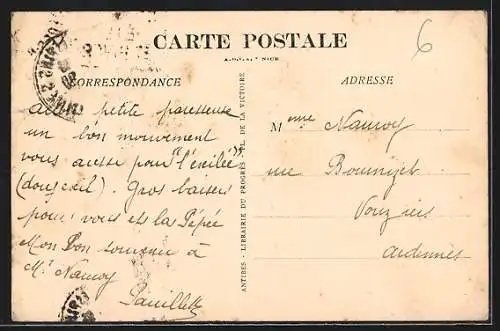 CARTE POSTALE
CORRESPONDANCE
ADRESSE
petite paresseuse
un bon mouvement
vous avesse pour "l'exilée"
(doux exil). Gros baisers
pour vous et la Pépée
Mon Bon souvenir à
Mr Namoy
ANTIBES - LIBRAIRIE DU PROGRÈS, PL. DE LA VICTOIRE
6
Mme Namoy
rue
Vouziers
Ardennes